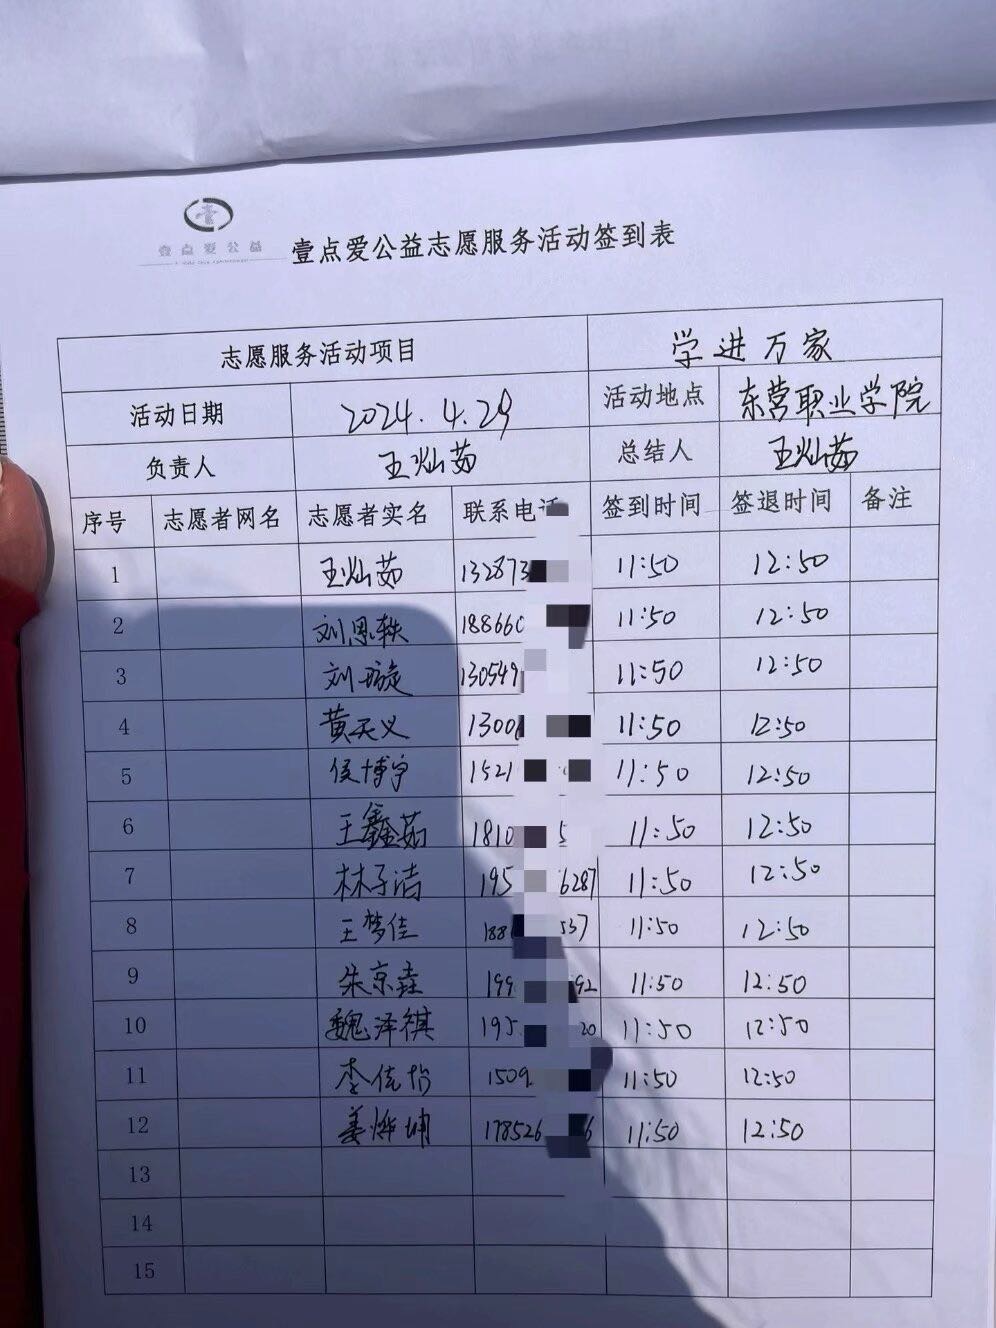 壹点爱公益
壹点爱公益志愿服务活动签到表
志愿服务活动项目 学进万家
活动日期 2024.4.29 活动地点 东营职业学院
负责人 王灿茹 总结人 王灿茹
序号 志愿者网名 志愿者实名 联系电话 签到时间 签退时间 备注
1 王灿茹 132873 11:50 12:50
2 刘恩轶 188660 11:50 12:50
3 刘璇 130549 11:50 12:50
4 黄天义 1300 11:50 12:50
5 侯博宇 1521 11:50 12:50
6 王鑫茹 1810 5 11:50 12:50
7 林子洁 195 6287 11:50 12:50
8 王梦佳 188 537 11:50 12:50
9 朱京垚 199 92 11:50 12:50
10 魏泽祺 195 20 11:50 12:50
11 李佳怡 1509 11:50 12:50
12 姜烨坤 178526 6 11:50 12:50
13
14
15